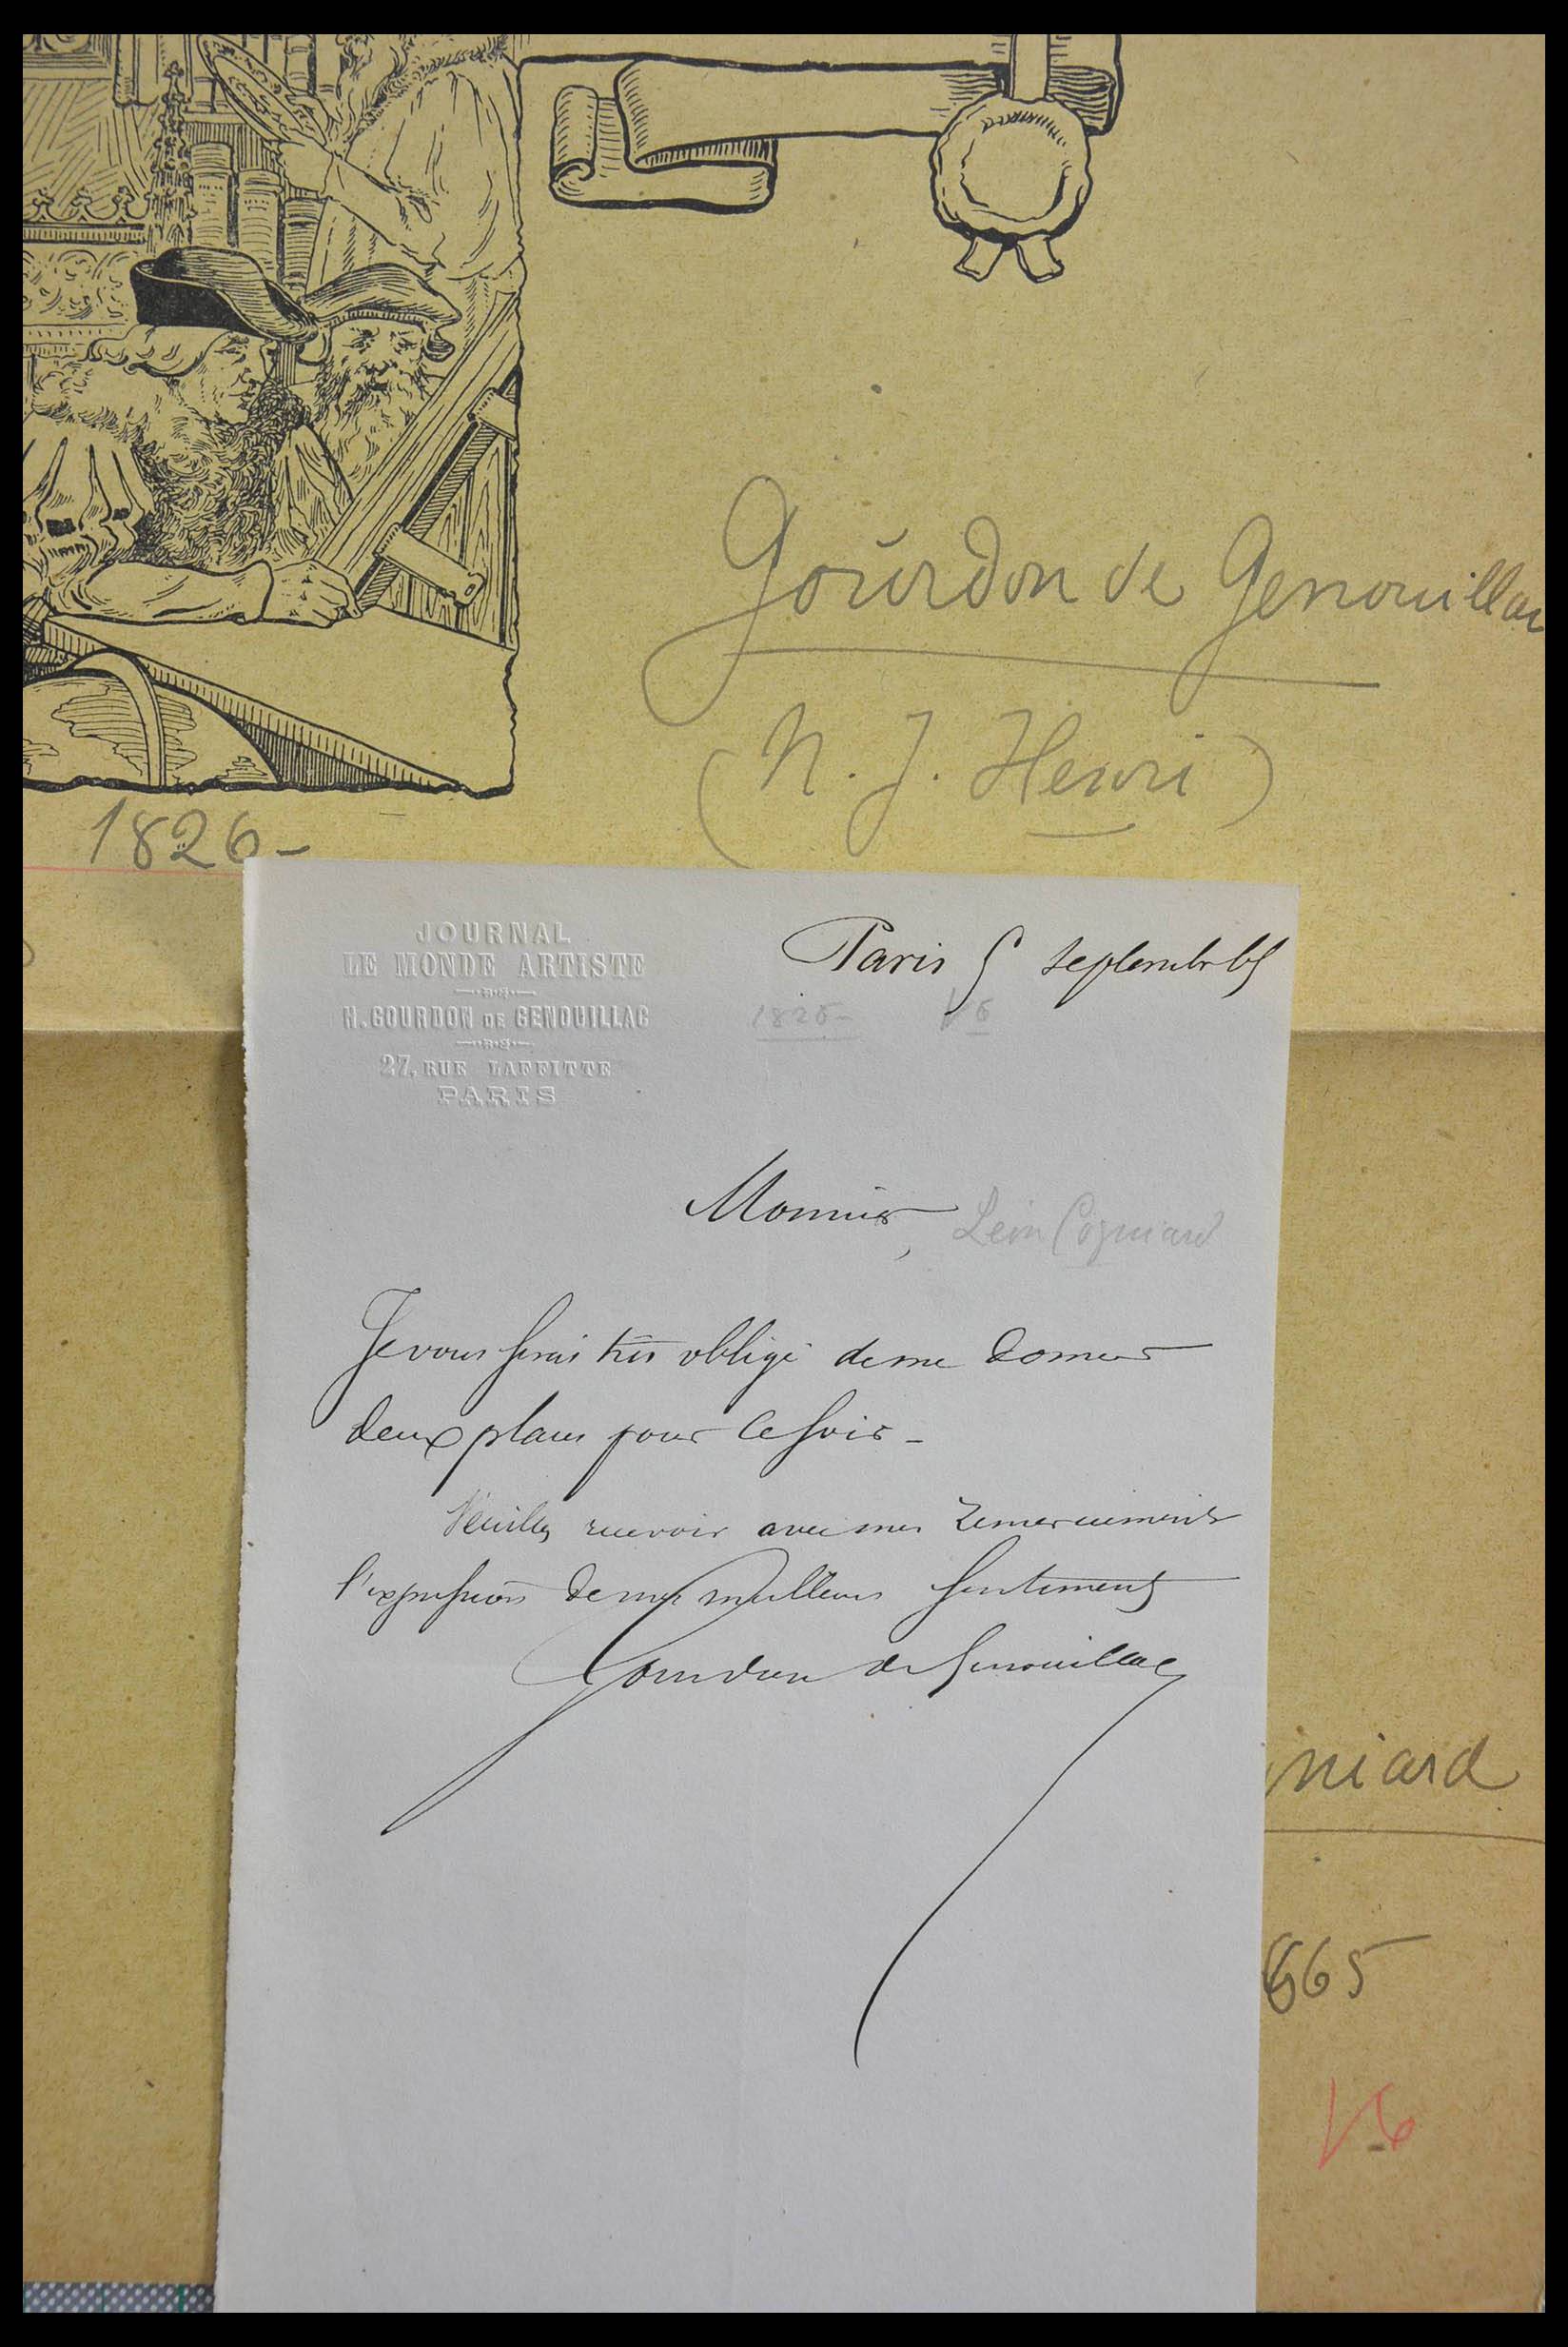 Gourdon de Genouillac
(N. J. Henri)
1826-
JOURNAL
LE MONDE ARTISTE
H. GOURDON DE GENOUILLAC
27, RUE LAFFITTE
PARIS
Paris 5 septembre 65
1826-
Monsieur,
Léon Cogniard
Je vous serais très obligé de me donner
deux places pour ce soir -
Veuillez recevoir avec mes remerciements
l'expression de mes meilleurs sentiments
Gourdon de Genouillac
niard
865